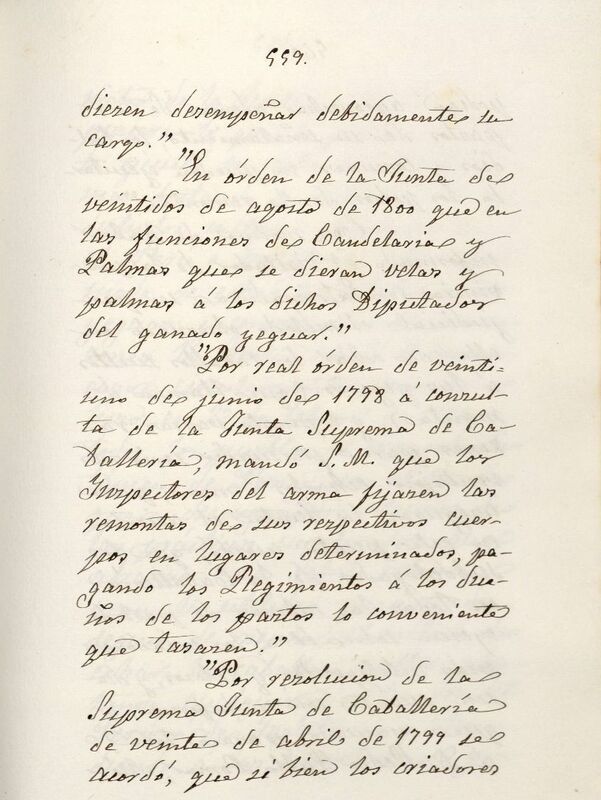 559.
diezen desempeñar debidamente su
cargo."
"En órden de la Junta de
veintidos de agosto de 1800 que en
las funciones de Candelaria y
Palmas que se dieran velas y
palmas á los dichos Diputados
del ganado yeguar."
"Por real órden de veinti=
uno de junio de 1798 á consul-
ta de la Junta Suprema de Ca-
ballería, mandó S. M. que los
Inspectores del arma fijasen las
remontas de sus respectivos cuer-
pos en lugares determinados, pa-
gando los Regimientos á los due-
ños de los partos lo conveniente
que tasaren."
"Por resolucion de la
Suprema Junta de Caballería
de veinte de abril de 1799 se
acordó, que si bien los criadores